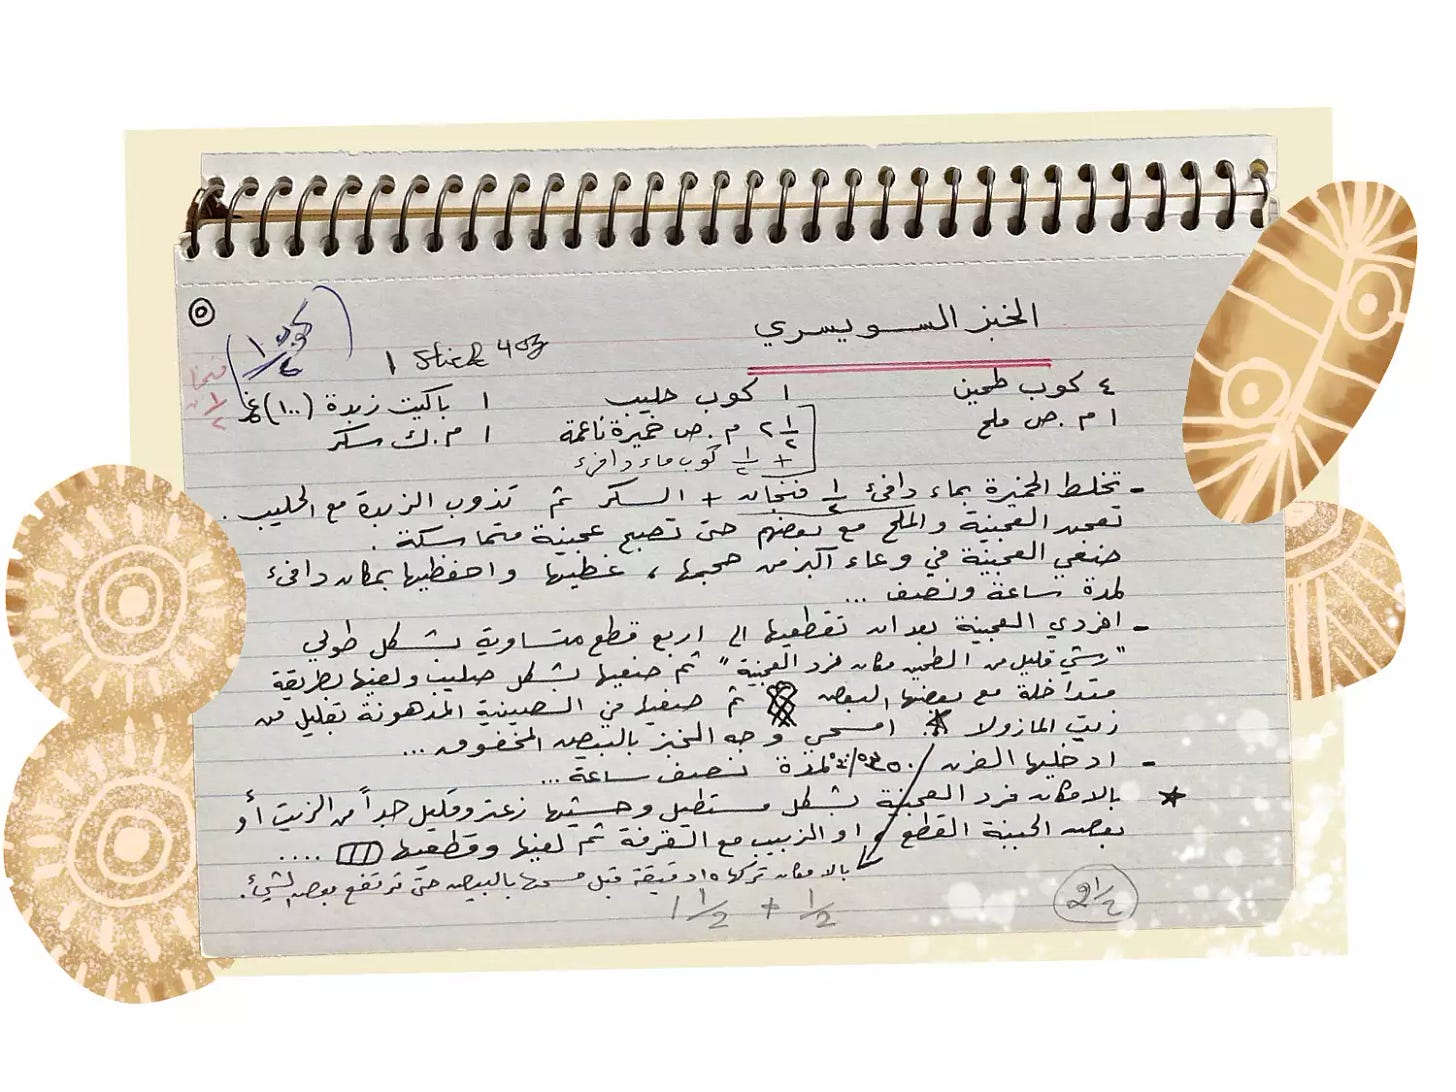 الخبز السويسري
1 Stick 4oz
كوب 1/2
فنجان 1/2
٤ كوب طحين
١ كوب حليب
١ باكيت زبدة (١٠٠) غم
١ م.ص ملح
٢ 1/2 م.ص خميرة ناعمة
١ م.ك سكر
+ 1/2 كوب ماء دافئ
- تخلط الخميرة بماء دافئ 1/2 فنجان + السكر ثم تذوب الزبدة مع الحليب.
تعجن العجينة والملح مع بعضهم حتى تصبح عجينة متماسكة.
ضعي العجينة في وعاء أكبر من حجمها، غطيها واحفظيها بمكان دافئ
لمدة ساعة ونصف ...
- افردي العجينة بعد ان تقطعيها الى اربع قطع متساوية بشكل طولي
"رشي قليل من الطحين مكان فرد العجينة" ثم ضعيها بشكل صليب ولفيها بطريقة
متداخلة مع بعضها البعض ثم ضعيها في الصينية المدهونة بقليل من
زيت المازولا. امسحي وجه الخبز بالبيض المخفوق...
- ادخليها الفرن لمدة نصف ساعة...
★ بالامكان فرد العجينة بشكل مستطيل وحشيها زعتر وقليل جداً من الزيت أو
بعض الجبنة القطع او الزبيب مع القرفة ثم لفيها وقطعيها ....
بالامكان تركها ١٥ دقيقة قبل مسحها بالبيض حتى ترتفع بعض الشيء.
1 1/2 + 1/2
2 1/2